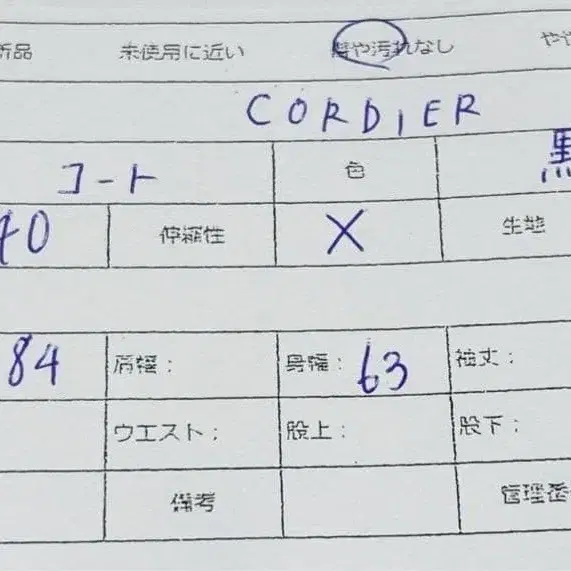 新品 未使用に近い 傷や汚れなし やや
CORDIER
コート 色 黒
40 伸縮性 X 生地
84 肩幅： 身幅：63 袖丈：
ウエスト： 股上： 股下：
備考 管理番